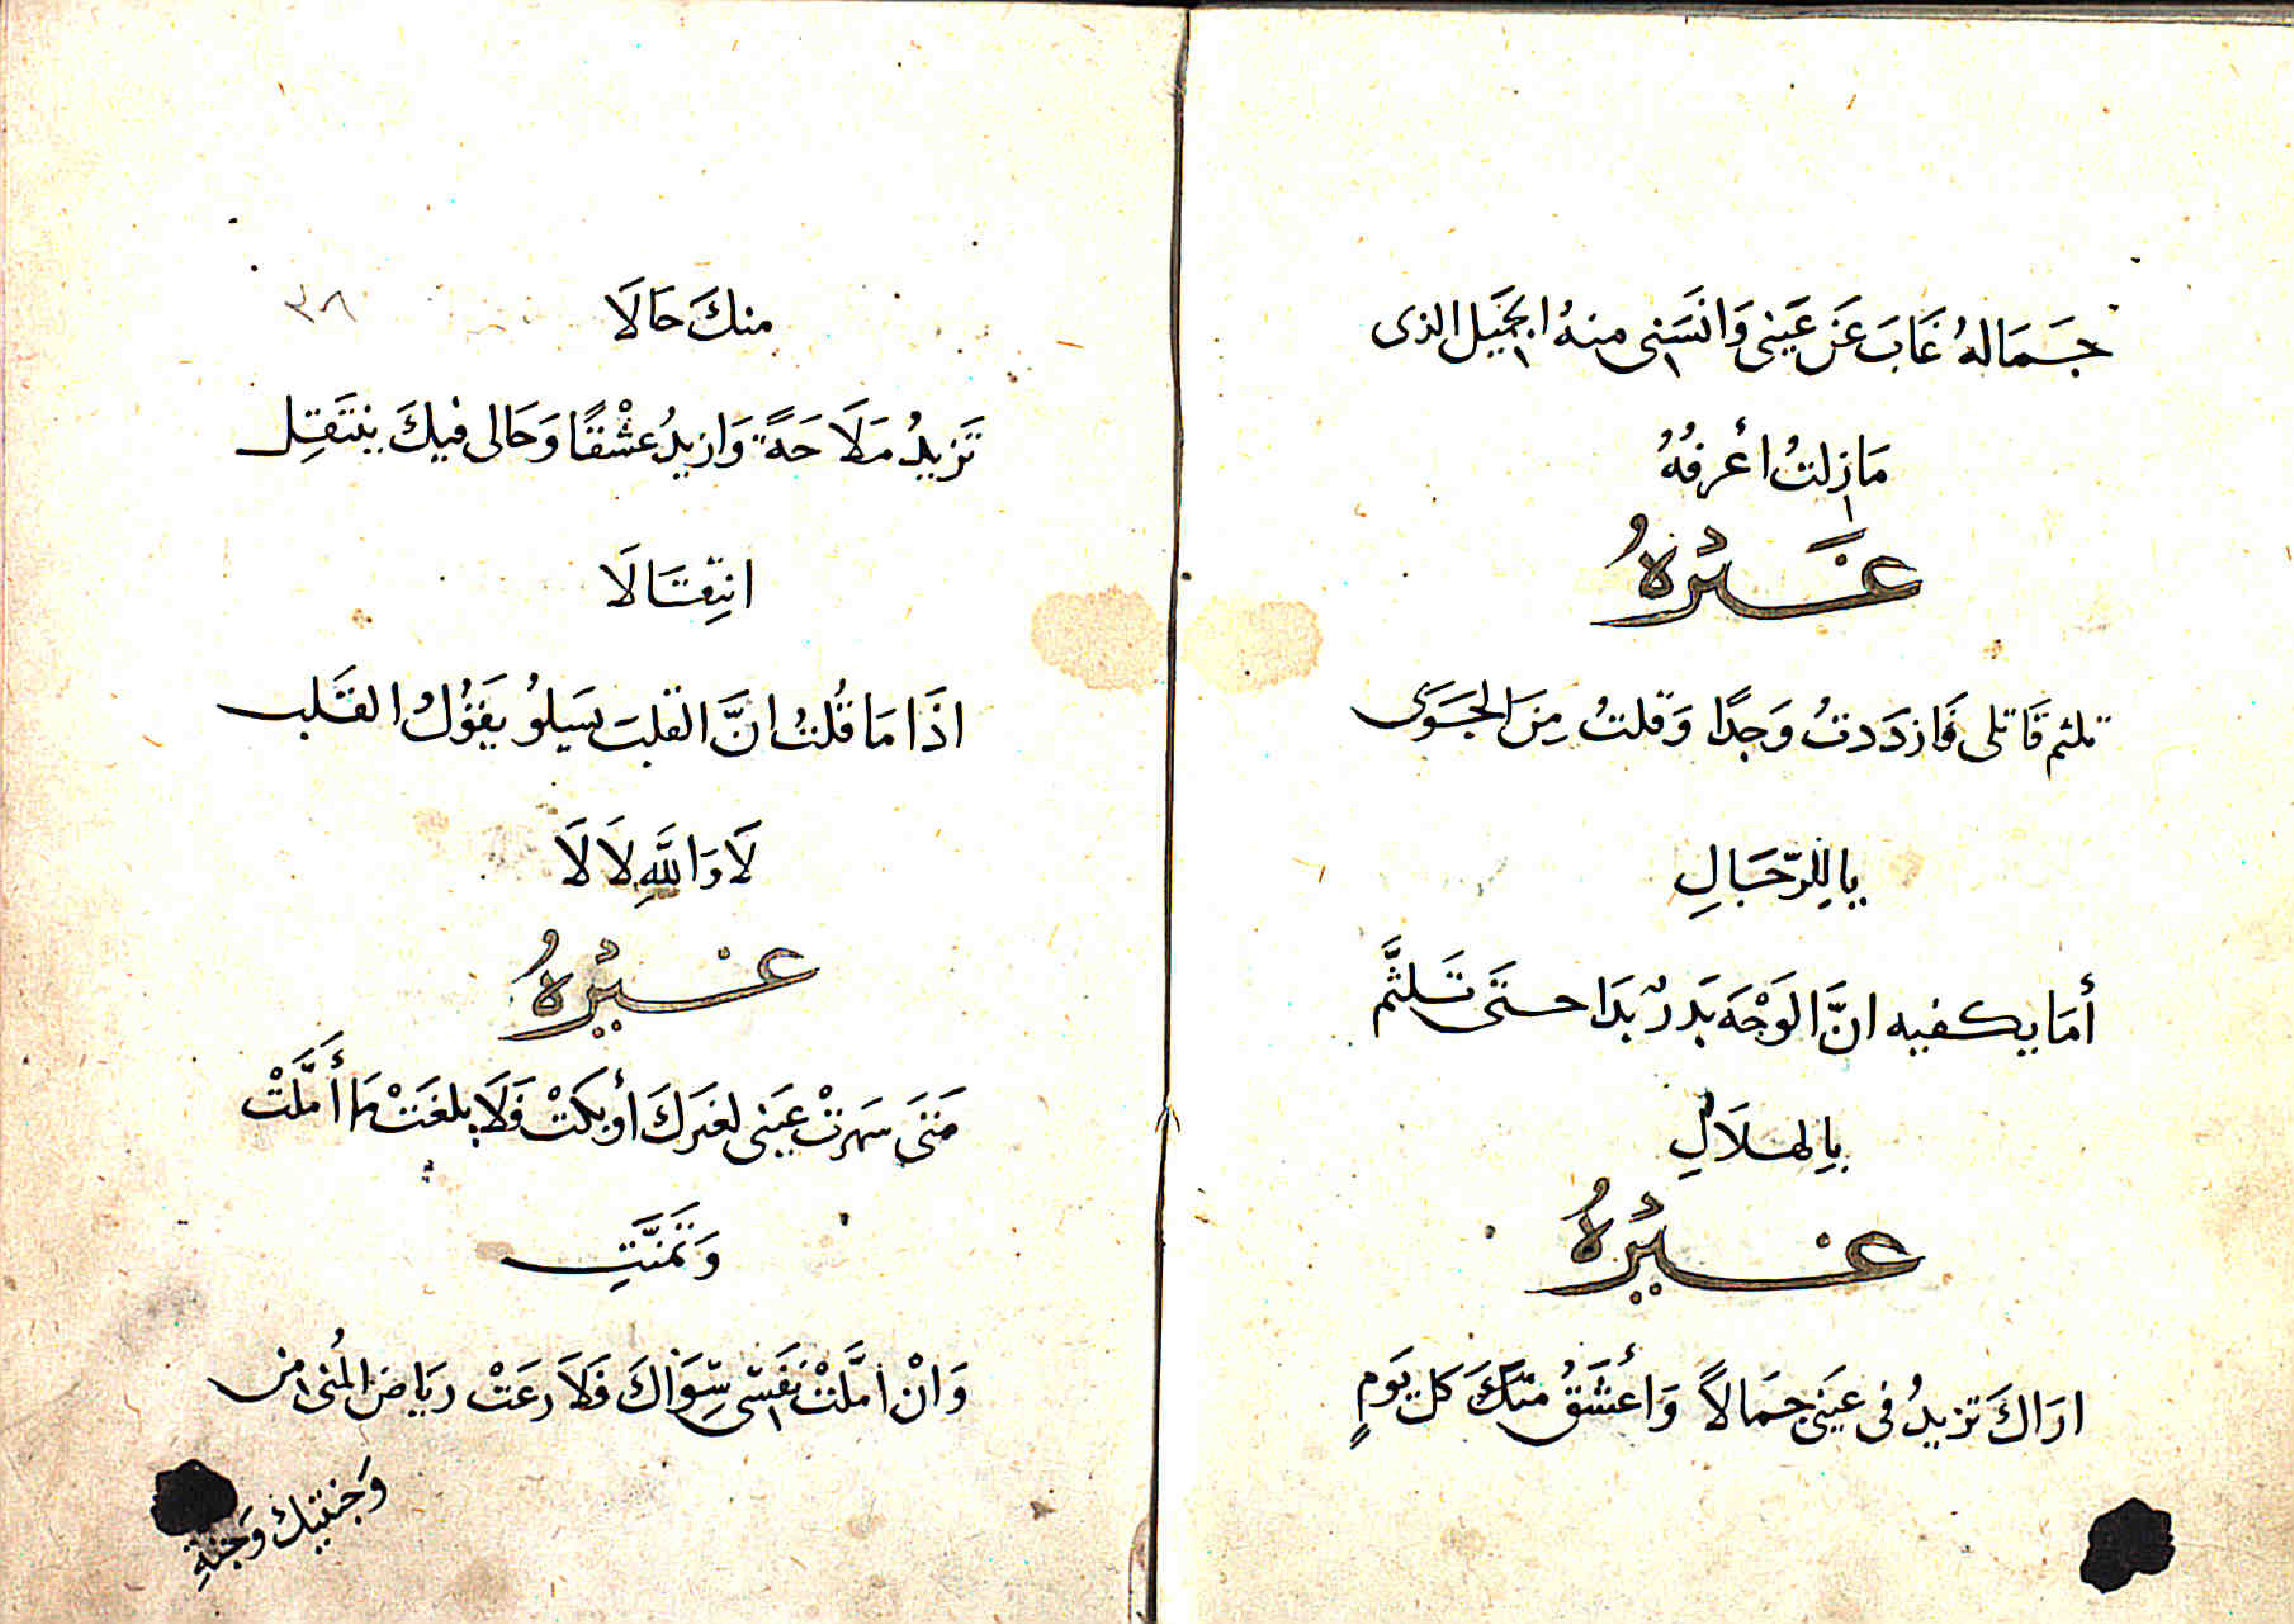 جَمَالهُ غَابَ عَن عَينى وَانسَنى منهُ الجَميل الذى
مَازلتُ أعْرفُهُ
غَيْرهُ
تلثم قَاتلى فَازدَدتُ وَجدًا وَقلتُ مِنَ الجَوَى
يا لِلرّجَالِ
أمَا يكفيه انَّ الوَجْهَ بَدرٌ بدَا حتَى تَلثَّم
بِالهلَالِ
غيْرهُ
ارَاكَ تزيدُ فى عَينى جمَالاً وَأعشَقُ منكَ كل يَومٍ
٣٨
منكَ حَالَا
تَزيدُ مَلَاحَةً وَازيدُ عشْقًا وَحَالى فيكَ ينتَقِل
انتِقَالَا
اذَا مَا قُلتُ انَّ القلبَ يَسلوُ يَقوُلُ القَلب
لَا وَاللَّهِ لَا لَا
غيْرهُ
مَتَى سَهرتْ عَينى لغَيركَ أو بكَتْ فَلَا بلغَتْ مَا أَمَّلَتْ
وَتَمنَّتِ
وَانْ امَّلَتْ نَفَسى سِوَاكَ فَلَا رعَتْ ريَاضَ المُنى من
وَجنتيك وَجنةِ